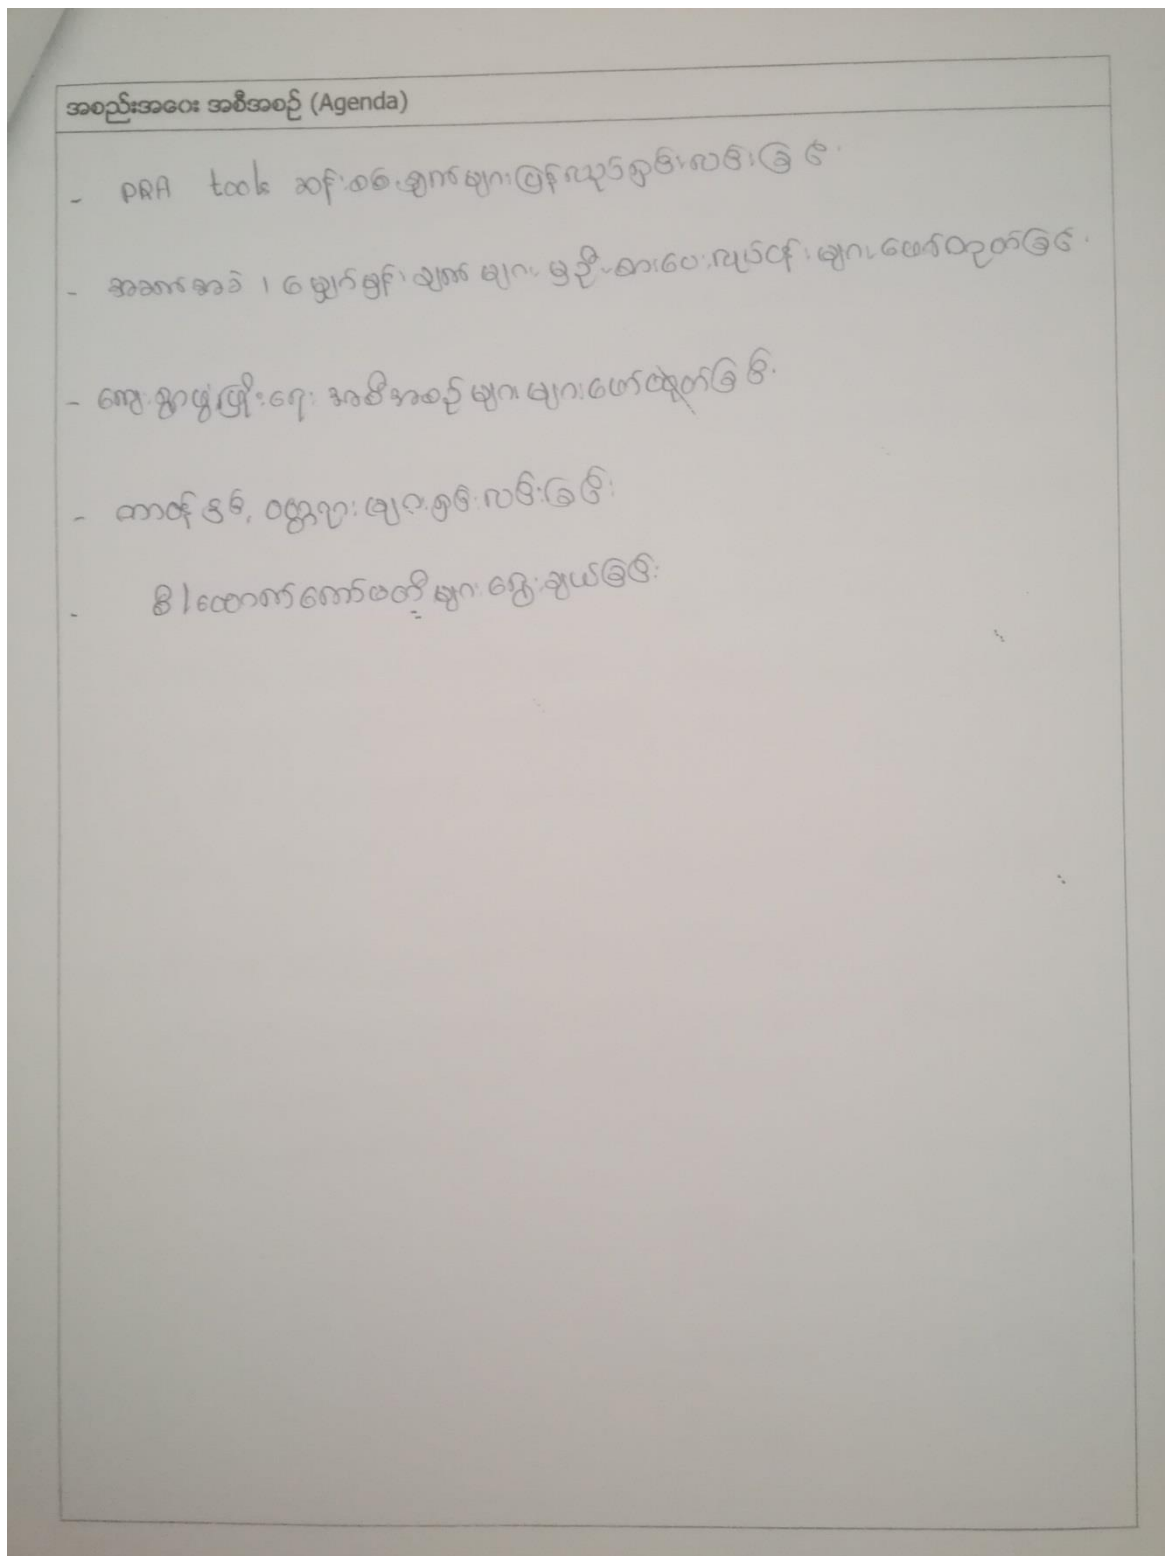 အစည်းအဝေး အစီအစဉ် (Agenda)
- PRA tools ဆန်းစစ်ချက်များပြန်လည်ရှင်းလင်းခြင်း
- အခက်အခဲ ၊ မျှော်မှန်းချက်များ မှဦးစားပေးလုပ်ငန်းများဖော်ထုတ်ခြင်း
- ကျေးရွာဖွံ့ဖြိုးရေး အစီအစဉ်များများဖော်ထုတ်ခြင်း
- တာဝန်နှင့် ဝတ္တရားများရှင်းလင်းခြင်း
- စီ/ထောက်ကော်မတီများရွေးချယ်ခြင်း